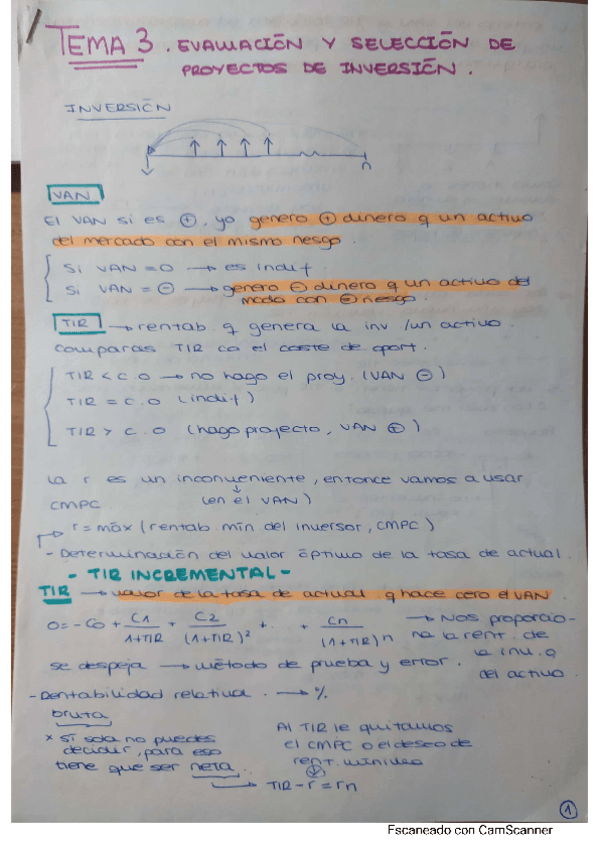 TEMA 3. EVALUACIÓN Y SELECCIÓN DE
PROYECTOS DE INVERSIÓN.
INVERSIÓN
n
VAN
El VAN si es ⊕, yo genero ⊕ dinero q un activo
del mercado con el mismo riesgo.
Si VAN = 0 → es indif
Si VAN = ⊖ → genero ⊖ dinero q un activo del
mcdo con ⊖ riesgo.
TIR → rentab q genera la inv /un activo.
comparas TIR co el coste de oport.
TIR < c.o → no hago el proy. (VAN ⊖)
TIR = c.o (indif)
TIR > c.o (hago proyecto, VAN ⊕)
La r es un inconveniente, entonce vamos a usar
CMPC (en el VAN)
r = máx (rentab min del inversor, CMPC)
- Determinación del valor óptimo de la tasa de actual.
- TIR INCREMENTAL -
TIR → valor de la tasa de actual q hace cero el VAN
0 = -C0 + C1/1+TIR + C2/(1+TIR)² + . + Cn/(1+TIR)n → Nos proporcio-
na la rent. de
la inv. o
del activo.
se despeja → método de prueba y error.
- Rentabilidad relativa. → %
bruta
* sí sola no puedes
decidir, para eso
tiene que ser neta.
Al TIR le quitamos
el CMPC o el deseo de
rent. mínima
→ TIR - r = rn
1
Escaneado con CamScanner